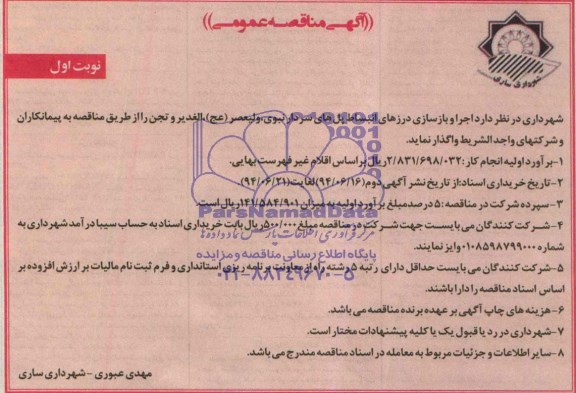 ((آگهی مناقصه عمومی))
شهرداری ساری
نوبت اول
شهرداری در نظر دارد اجرا و بازسازی درزهای انبساط پل های سردار نبوی، ولیعصر (عج)، الغدیر و تجن را از طریق مناقصه به پیمانکاران
و شرکتهای واجد الشریط واگذار نماید.
۱-برآورد اولیه انجام کار: ۲/۸۳۱/۶۹۸/۰۳۲ ریال بر اساس اقلام غیر فهرست بهایی.
۲-تاریخ خریداری اسناد: از تاریخ نشر آگهی دوم (۹۴/۰۶/۱۶) لغایت (۹۴/۰۶/۲۱)
۳-سپرده شرکت در مناقصه: ۵ درصد مبلغ برآورد اولیه به میزان ۱۴۱/۵۸۴/۹۰۱ ریال است.
۴-شرکت کنندگان می بایست جهت شرکت در مناقصه مبلغ ۵۰۰/۰۰۰ ریال بابت خریداری اسناد به حساب سیبا درآمد شهرداری به
شماره ۰۱۰۸۵۹۸۷۹۹۰۰۰ واریز نمایند.
۵-شرکت کنندگان می بایست حداقل دارای رتبه ۵ رشته راه از معاونت برنامه ریزی استانداری و فرم ثبت نام مالیات بر ارزش افزوده بر
اساس اسناد مناقصه را دارا باشند.
۶-هزینه های چاپ آگهی بر عهده برنده مناقصه می باشد.
۷-شهرداری در رد یا قبول یک یا کلیه پیشنهادات مختار است.
۸-سایر اطلاعات و جزئیات مربوط به معامله در اسناد مناقصه مندرج می باشد.
مهدی عبوری - شهرداری ساری
ParsNamadData
مرکز فرآوری اطلاعات پارس نماد داده ها
پایگاه اطلاع رسانی مناقصه و مزایده
۰۲۱-۸۸۳۴۹۶۷۰-۵